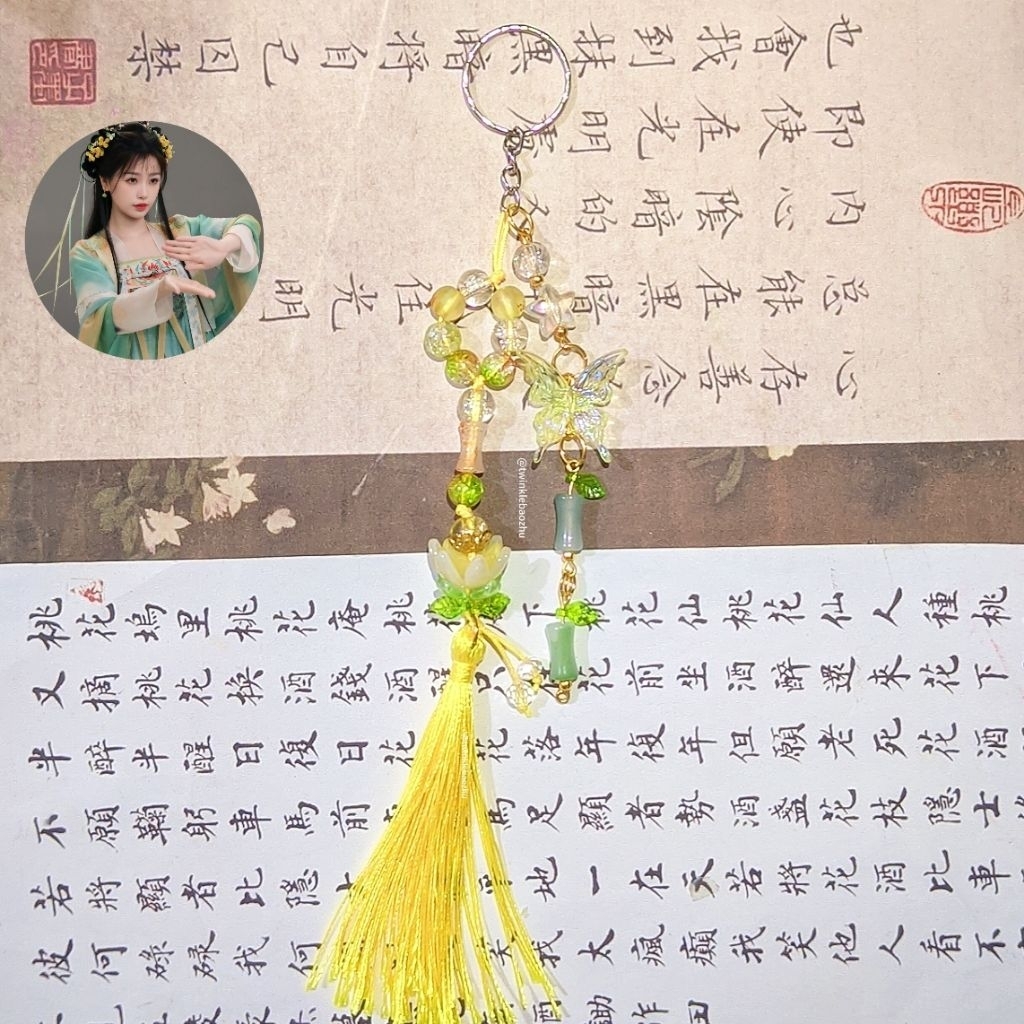 心存善念
总能在黑暗住光明
内心陰暗的人
即使在光明處
也會找到抹黑暗將自己囚禁
桃花塢里桃花庵桃下桃花仙桃花仙人種桃
又摘桃花換酒錢酒醒只花前坐酒醉還來花下
半醉半醒日復日花花落年復年但願老死花酒
不願鞠躬車馬前馬足顯者勢酒盞花枝隱士
若將顯者比隱士地一在天若將花酒比車
彼何碌碌我何笑我太瘋癲我笑他人看不
鋤作田
@twinklebaozhu